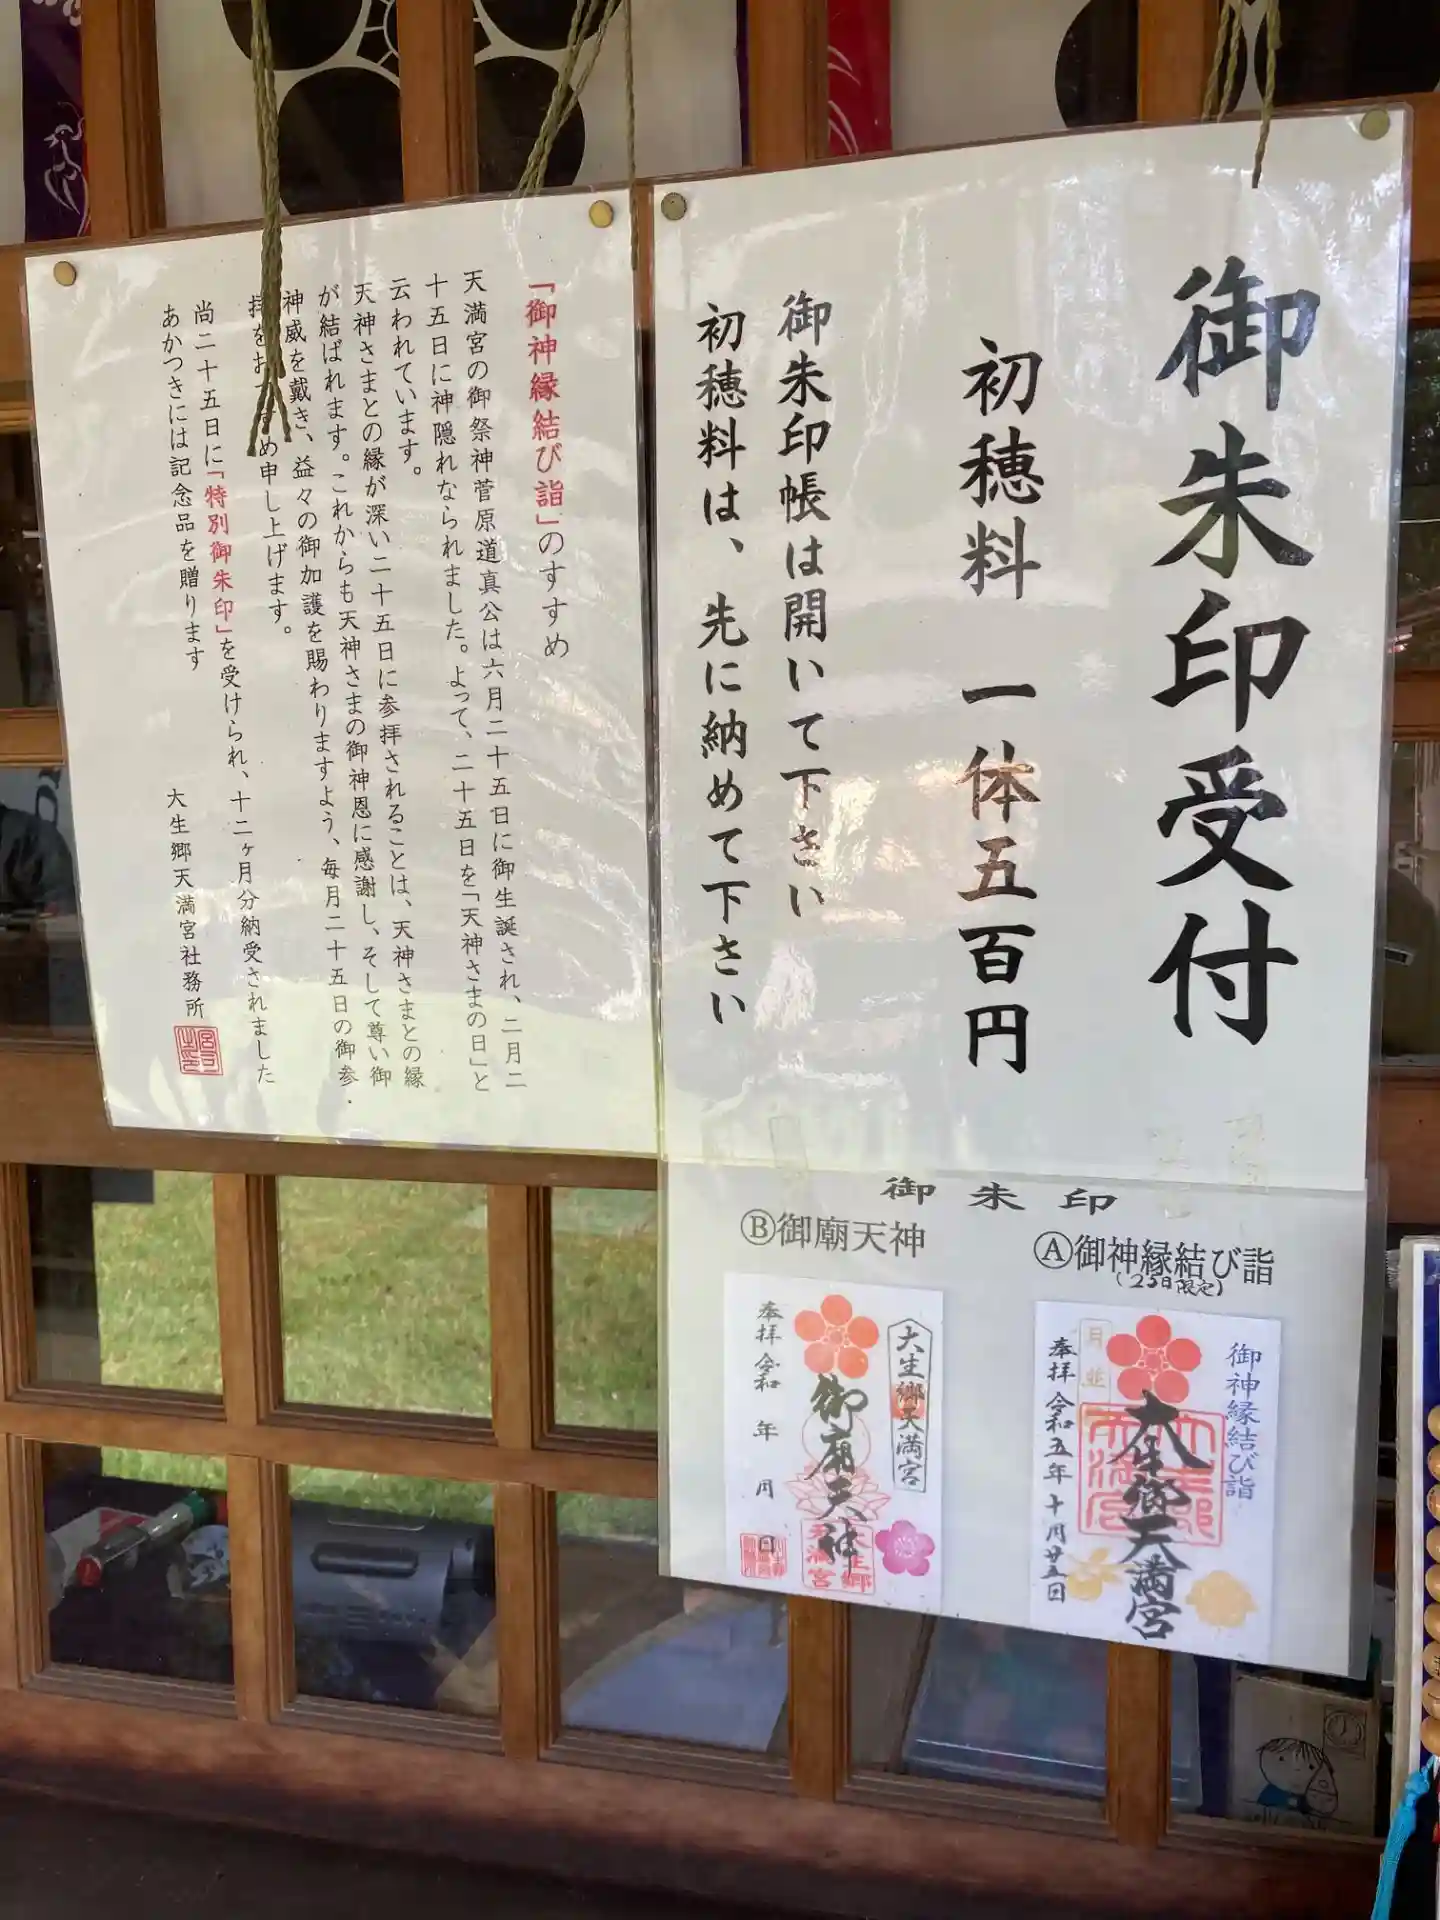 御朱印受付
初穂料 一体五百円
御朱印帳は開いて下さい
初穂料は、先に納めて下さい
「御神縁結び詣」のすすめ
天満宮の御祭神菅原道真公は六月二十五日に御生誕され、二月二
十五日に神隠れなられました。よって、二十五日を「天神さまの日」と
云われています。
天神さまとの縁が深い二十五日に参拝されることは、天神さまとの縁
が結ばれます。これからも天神さまの御神恩に感謝し、そして尊い御
神威を戴き、益々の御加護を賜わりますよう、毎月二十五日の御参
拝をおすすめ申し上げます。
尚二十五日に「特別御朱印」を受けられ、十二ヶ月分納受されました
あかつきには記念品を贈ります
大生郷天満宮社務所
御朱印
Ⓐ御神縁結び詣
(25日限定)
御神縁結び詣
大生郷天満宮
月並
奉拝 令和五年十月廿五日
Ⓑ御廟天神
大生郷天満宮
御廟天神
大生郷
天満宮
奉拝 令和 年 月 日